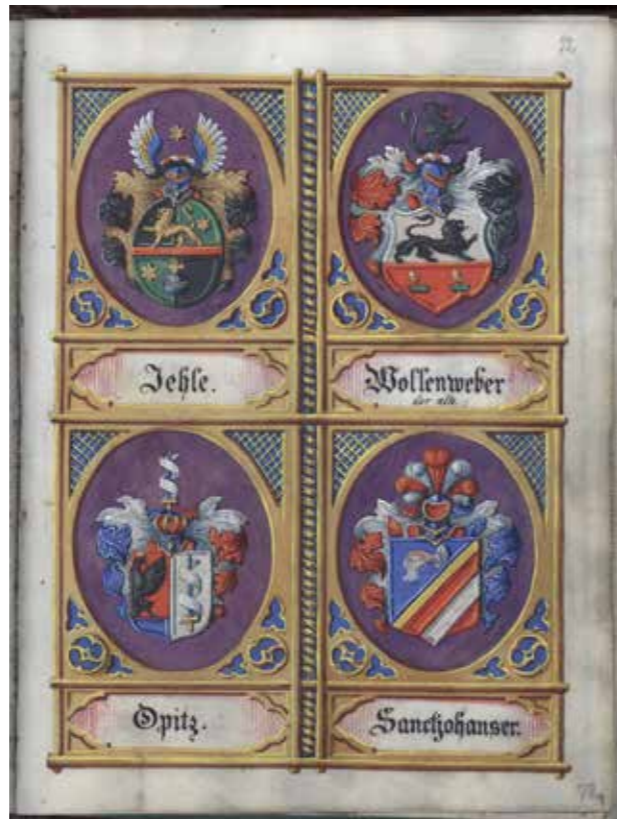 Jehle.
Wollenweber
der alte.
Opitz.
Sanctjohanser.